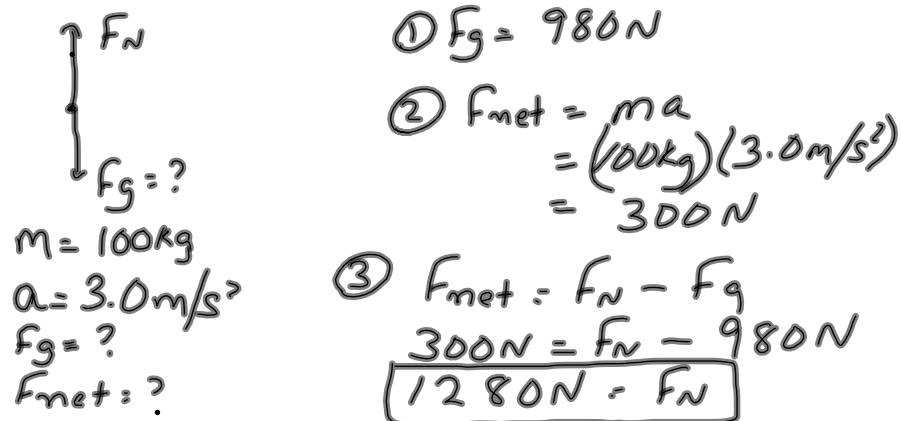 F_N
Fg = ?
m = 100kg
a = 3.0m/s²
Fg = ?
Fnet = ?
① Fg = 980N
② Fnet = ma
= (100kg)(3.0m/s²)
= 300N
③ Fnet = F_N - Fg
300N = F_N - 980N
1280N = F_N